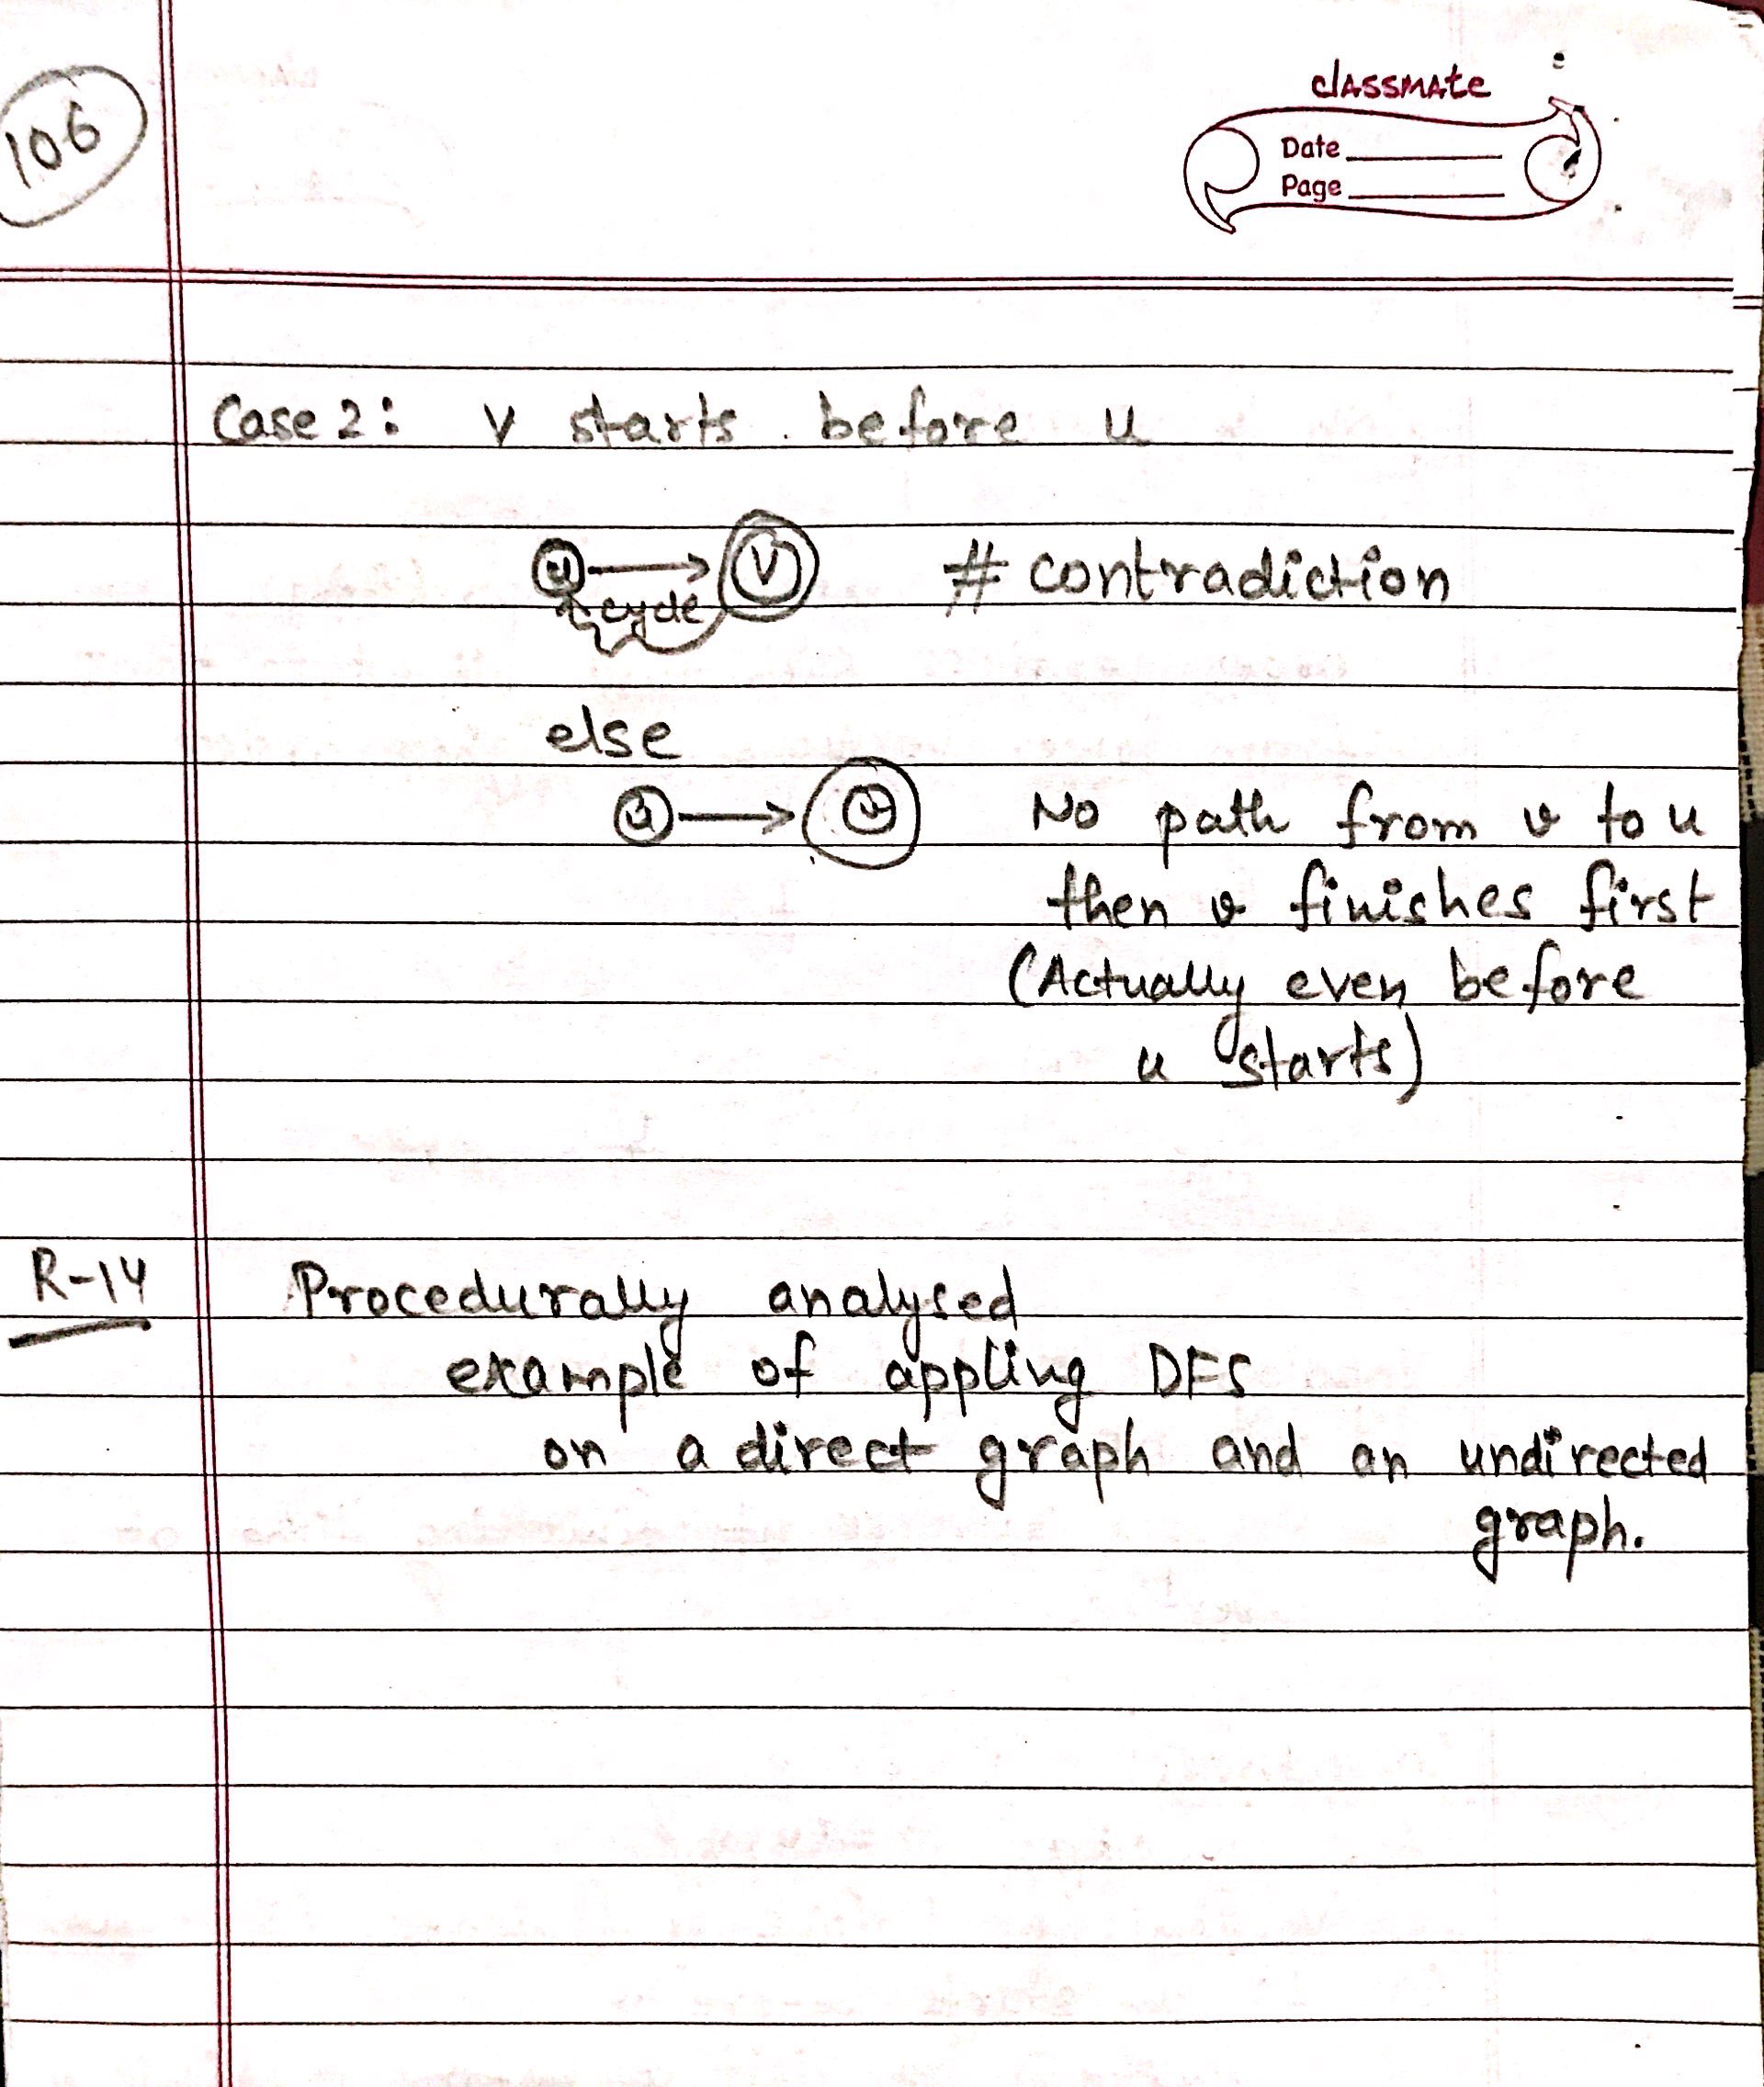 106
classmate
Date
Page
Case 2: v starts before u
u → v # contradiction
cycle
else
u → v No path from v to u
then v finishes first
(Actually even before
u starts)
R-14 Procedurally analysed
example of appling DFS
on a direct graph and an undirected
graph.